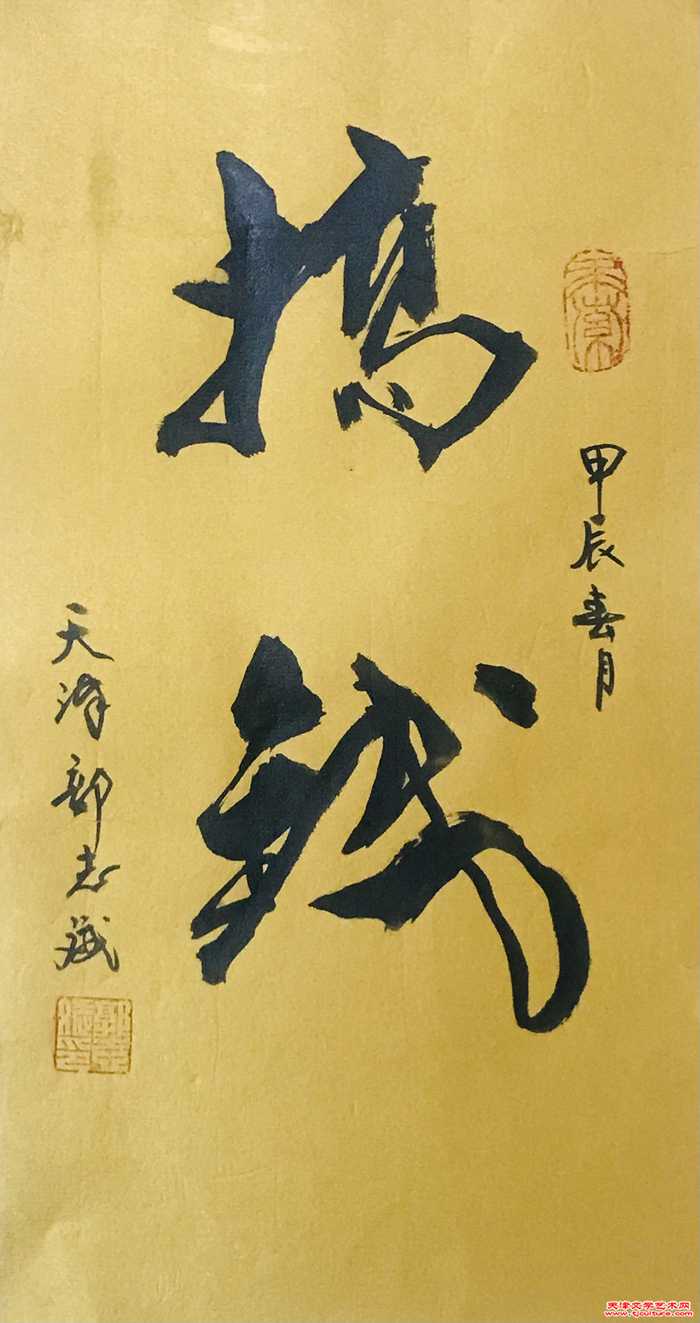 搞钱
甲辰春月
天津郭志诚
天津文学艺术网
www.tjculture.com